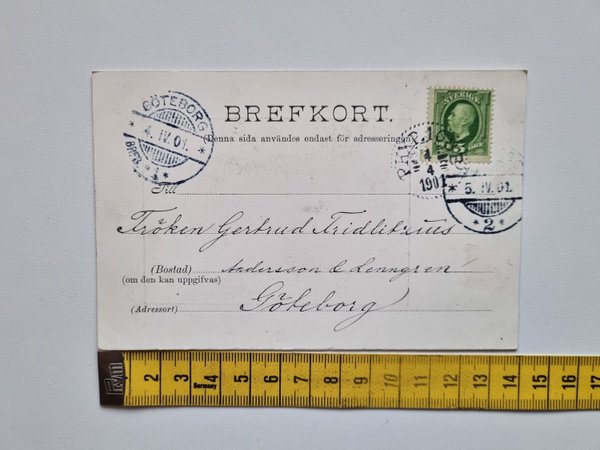 BREFKORT.
(Denna sida användes endast för adresseringen)
SVERIGE
5
GÖTEBORG
4. IV. 01.
1
4
4
1901
5. IV. 01.
2
Till
Fröken Gertrud Fridlitzius
(Bostad) Andersson & Lenngren
(om den kan uppgifvas)
(Adressort) Göteborg
2 3 4 5 6 7 8 9 10 11 12 13 14 15 16 17
Germany